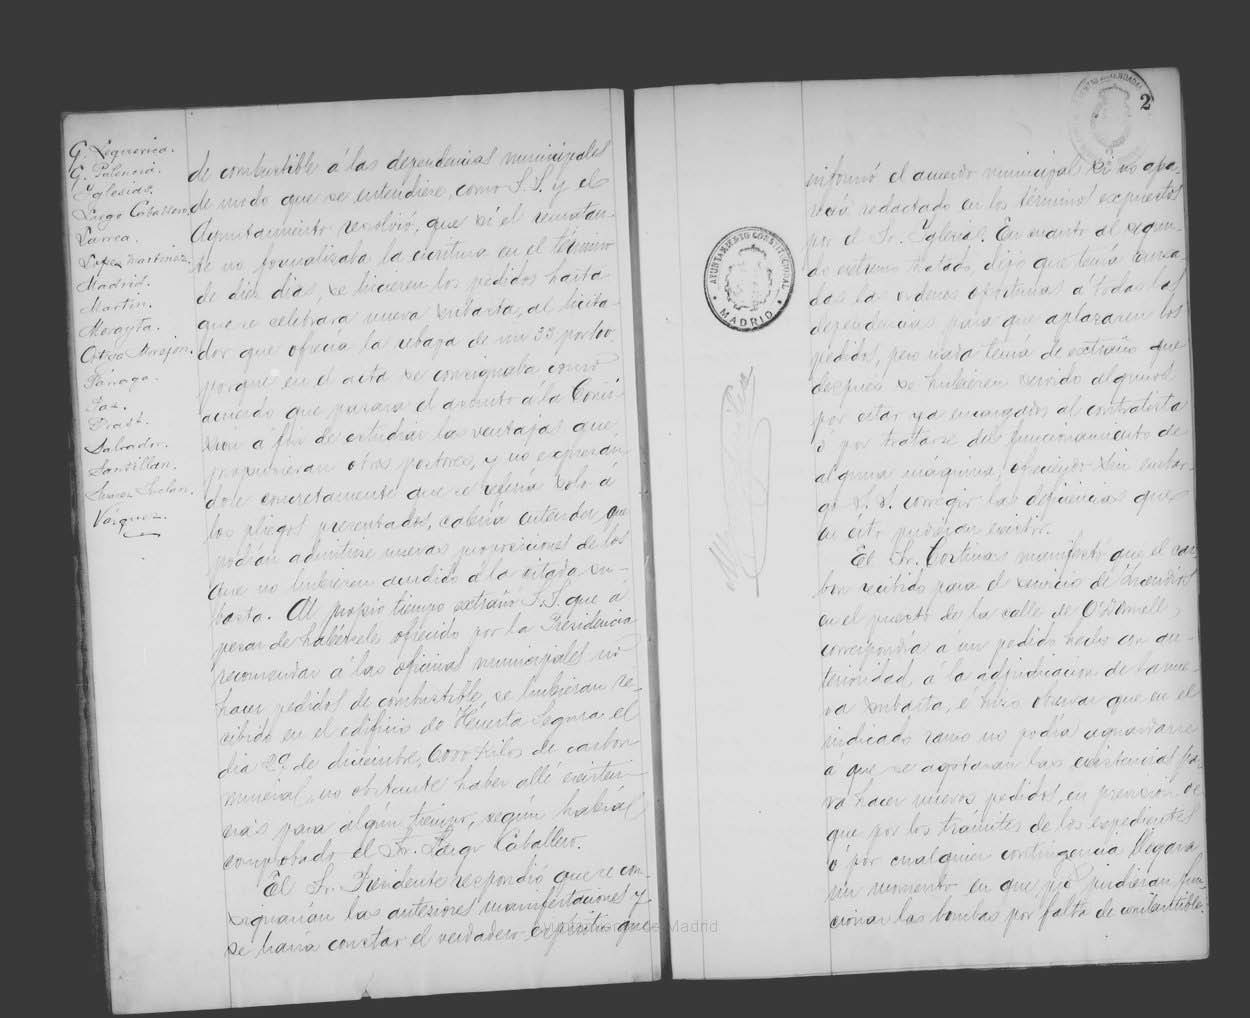 G. Lequerica.
G. Palencia.
Iglesias.
Largo Caballero.
Larrea.
López Martinez.
Madrid.
Martin.
Morayta.
Ortega Morejon.
Pánago.
Paz.
Prast.
Salvador.
Santillan.
Suarez Inclán.
Vázquez.
de combustible á las dependencias municipales
de modo que se entendiese, como S. S. y el
Ayuntamiento resolvió, que si el rematan-
te no formalizaba la escritura en el término
de diez dias, se hicieren los pedidos hasta
que se celebrara nueva subasta, al licita-
dor que ofrecia la rebaja de un 33 por 100
porque en el acta se consignaba como
acuerdo que pasara el asunto á la Comi-
sión á fin de estudiar las ventajas que
propusieran otros postores, y no expresan-
dose concretamente que se referia solo á
los pliegos presentados, cabria entender que
podian admitirse nuevas proposiciones de los
que no hubiesen acudido á la citada su-
basta. Al propio tiempo extrañó S. S. que á
pesar de habérsele ofrecido por la Presidencia
recomendar á las oficinas municipales no
hacer pedidos de combustible, se hubieran re-
cibido en el edificio de Huerta Segura el
dia 29 de diciembre, 6000 kilos de carbon
mineral, no obstante haber alli existen-
cias para algún tiempo, según habia
comprobado el Sr. Largo Caballero.
El Sr. Presidente respondió que se con-
signarian las anteriores manifestaciones y
se haria constar el verdadero espíritu que
de Madrid
2
AYUNTAMIENTO CONSTITUCIONAL
MADRID
informó el acuerdo municipal si no apa-
recia redactado en los términos expuestos
por el Sr. Iglesias. En cuanto al segun-
do extremo tratado, dijo que tenia cursa-
das las ordenes oportunas á todas las
dependencias para que aplazaren los
pedidos, pero nada tenia de extraño que
despues se hubieren servido algunos
por estar ya encargados al contratista
ó por tratarse del funcionamiento de
alguna máquina, ofreciendo sin embar-
go S. S. corregir las deficiencias que
en esto pudieran existir.
El Sr. Cortinas manifestó que el car-
bon recibido para el servicio de Incendios
en el puesto de la calle de O'Donnell,
correspondia á un pedido hecho con an-
terioridad, á la adjudicacion de la nue-
va subasta, é hizo observar que en el
indicado ramo no podia aguardarse
á que se agotaran las existencias pa-
ra hacer nuevos pedidos, en prevision de
que por los trámites de los expedientes
ó por cualquier contingencia llegara
un momento en que no pudieran fun-
cionar las bombas por falta de combustible.